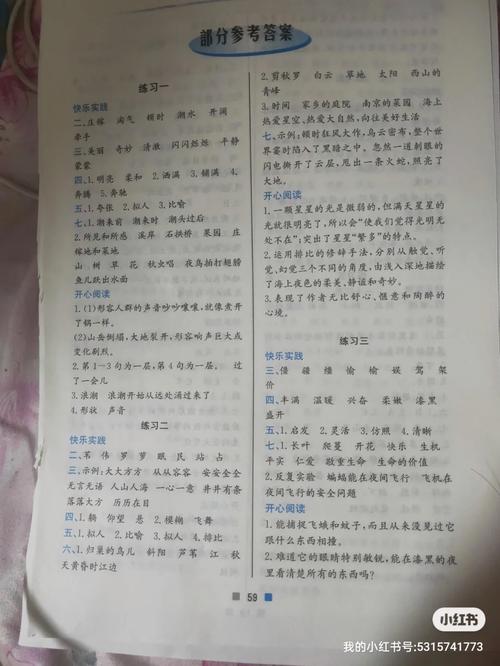 部分参考答案
练习一
快乐实践
二、庄稼 淘气 顿时 潮水 开阔
牵手
三、美丽 奇妙 清澈 闪闪烁烁 平静
蒙蒙
四、1.明亮 柔和 2.洒满 3.铺满 4.
奔腾 5.奔驰
五、1.夸张 2.拟人 3.比喻
七、1.潮来前 潮来时 潮头过后
2.所见和所感 溪岸 石拱桥 果园 庄
稼地和菜地
山 树 草 花 秋虫唱 夜鸟拍打翅膀
鱼儿跃出水面
开心阅读
1.(1)形容人群的声音吵吵嚷嚷,就像煮开
了锅一样。
(2)山岳倒塌,大地裂开,形容响声巨大或
变化剧烈。
2.第1—3句为一层,第4句为一层。 过
了一会儿
3.浪潮 浪潮开始从远处涌过来了
4.形状 声音
练习二
快乐实践
二、苇 伟 罗 萝 眠 民 站 占
三、示例:大大方方 从从容容 安安全全
无言无语 人山人海 一心一意 井井有条
落落大方 历历在目
四、1.躺 仰望 悬 2.模糊 飞舞
五、1.拟人 2.比喻 3.拟人 4.排比
六、1.归巢的鸟儿 斜阳 芦苇 江 秋
天黄昏时江边
2.剪秋罗 白云 草地 太阳 西山的
青峰
3.时间 家乡的庭院 南京的菜园 海上
热爱星空、热爱大自然、向往美好生活
七、示例:顿时狂风大作,乌云密布,整个世
界霎时陷入了黑暗之中。忽然一道刺眼的
闪电撕开了云层,甩出一条火蛇,照亮了
大地。
开心阅读
1.一颗星星的光是微弱的,但满天星星的
光就很明亮了,所以会“使我们觉得光明无
处不在”;突出了星星“繁多”的特点。
2.运用排比的修辞手法,分别从触觉、听
觉、幻觉三个不同的角度,由浅入深地描绘
了海上夜色的柔美、静谧和奇妙。
3.表现了作者无比舒心、惬意和陶醉的
心境。
练习三
快乐实践
三、僵 疆 缠 愉 榆 娱 驾 架
价
四、丰满 温暖 兴奋 柔嫩 漆黑
盛开
五、1.启发 2.灵活 3.仿照 4.清晰
七、1.长叶 爬蔓 开花 快乐 生机
平实 仁爱 敬重生命 生命的价值
2.反复实验 蝙蝠能在夜间飞行 飞机在
夜间飞行的安全问题
开心阅读
1.能捕捉飞蛾和蚊子,而且从来没见过它
跟什么东西相撞。
2.难道它的眼睛特别敏锐,能在漆黑的夜
里看清楚所有的东西吗?
59
小红书
我的小红书号:5315741773